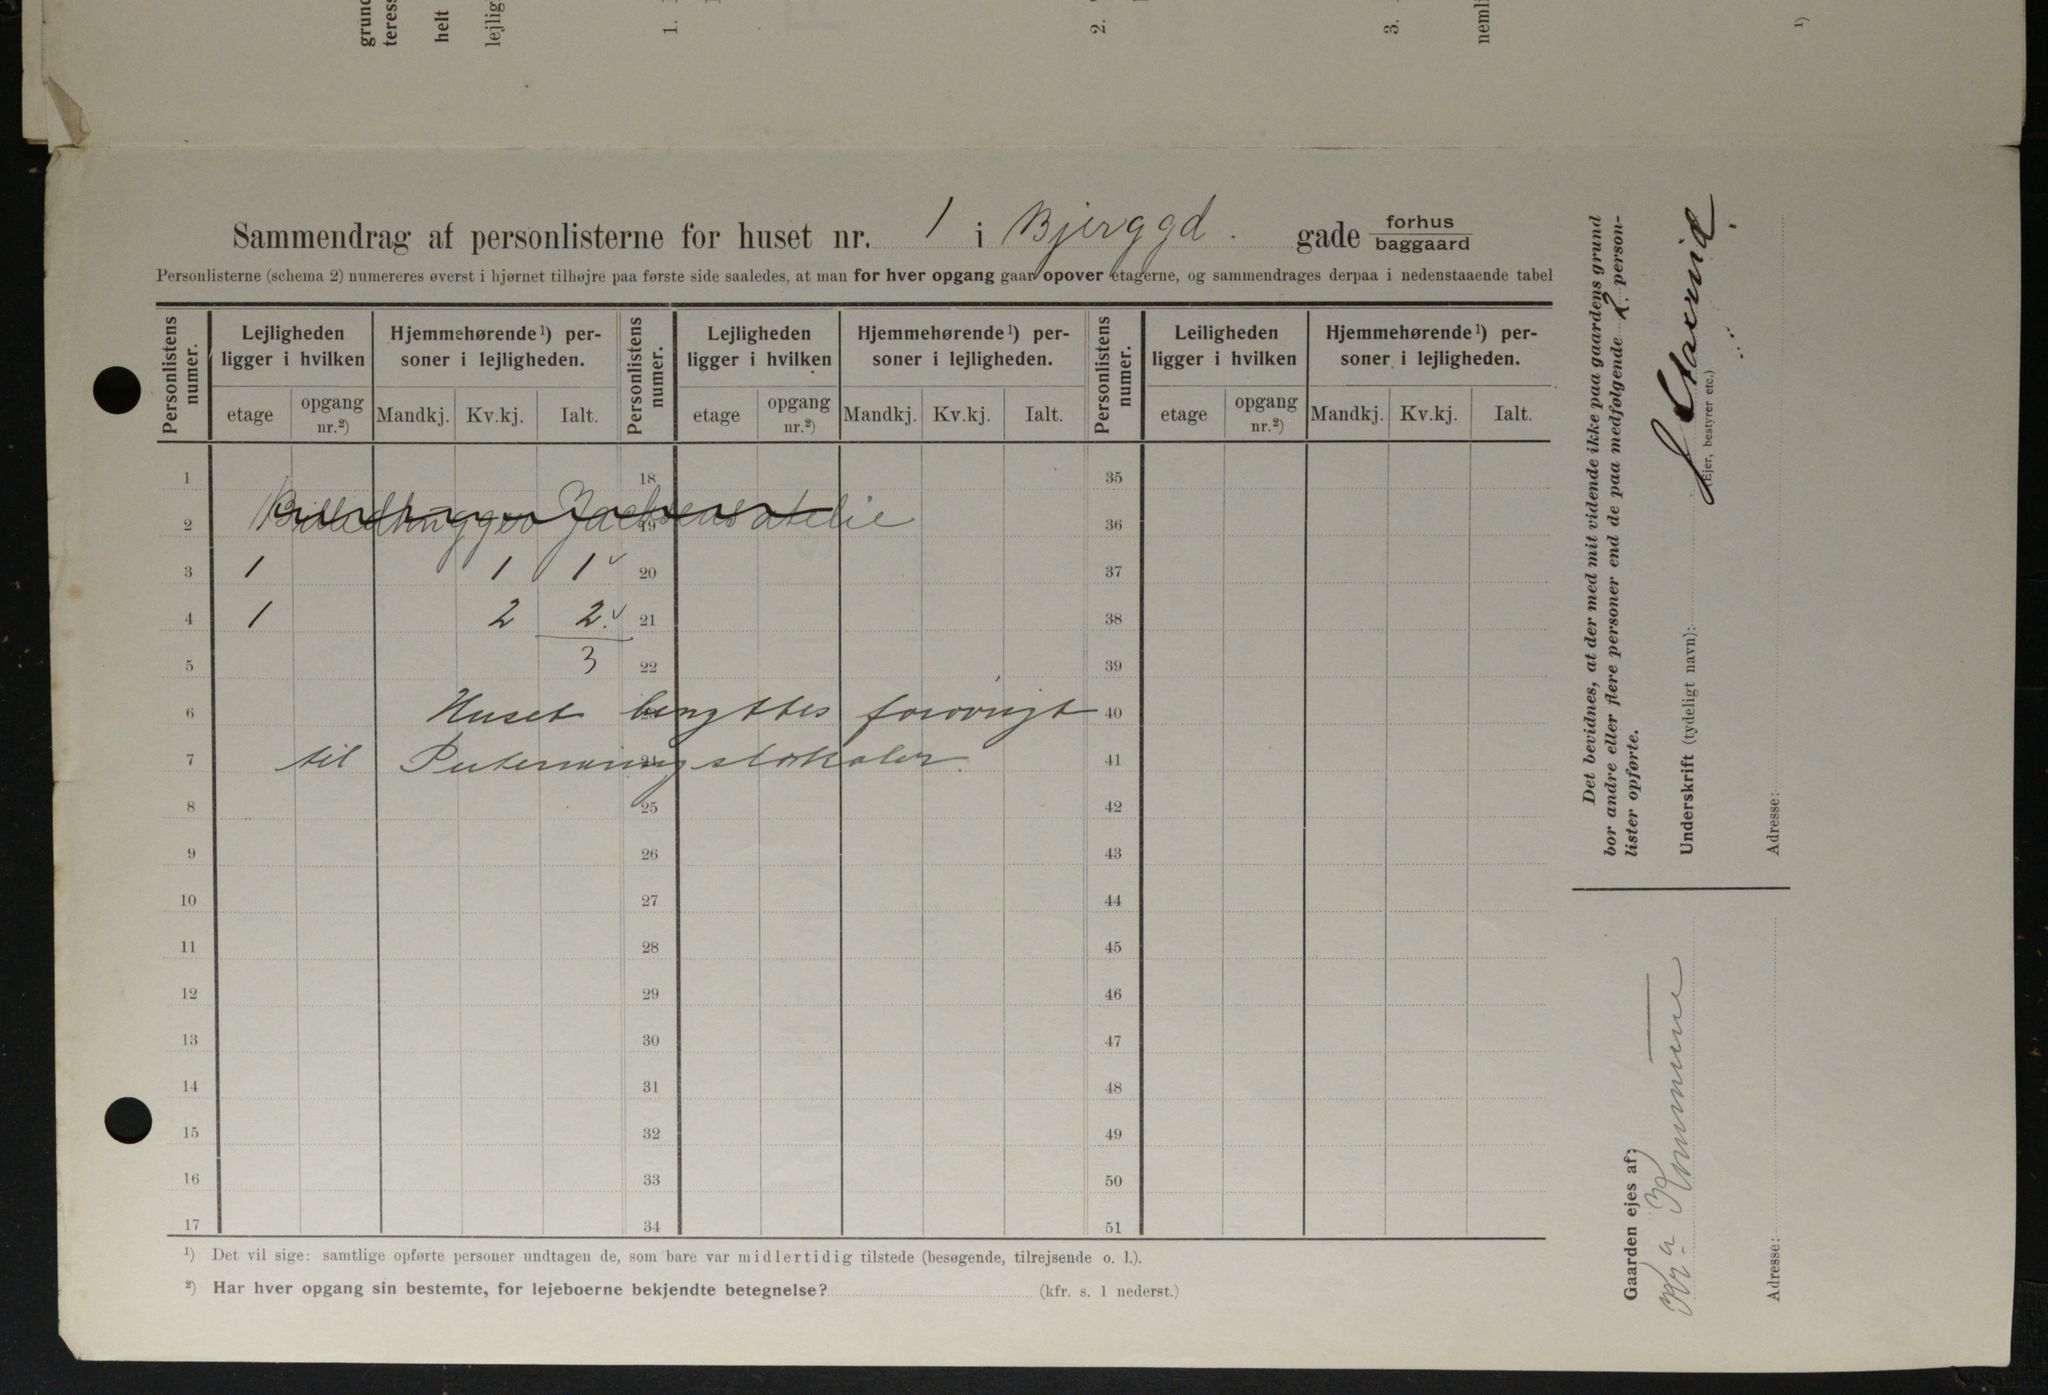 grund
teress
helt
lejlig
1.
2.
3.
nemli
1)
Sammendrag af personlisterne for huset nr. 1 i Bjerggd. gade forhus
baggaard
Personlisterne (schema 2) numereres øverst i hjørnet tilhøjre paa første side saaledes, at man for hver opgang gaar opover etagerne, og sammendrages derpaa i nedenstaaende tabel
Personlistens numer. Lejligheden ligger i hvilken Hjemmehørende¹) personer i lejligheden. Personlistens numer. Lejligheden ligger i hvilken Hjemmehørende¹) personer i lejligheden. Personlistens numer. Leiligheden ligger i hvilken Hjemmehørende¹) personer i lejligheden.
etage opgang nr.²) Mandkj. Kv.kj. Ialt. etage opgang nr.²) Mandkj. Kv.kj. Ialt. etage opgang nr.²) Mandkj. Kv.kj. Ialt.
1 18 35
2 Billedhugger atelie 19 36
3 1 1 1 20 37
4 1 2 2. 21 38
5 3 22 39
6 Huset benyttes forøvrigt 40
7 til 41
8 25 42
9 26 43
10 27 44
11 28 45
12 29 46
13 30 47
14 31 48
15 32 49
16 33 50
17 34 51
¹) Det vil sige: samtlige opførte personer undtagen de, som bare var midlertidig tilstede (besøgende, tilrejsende o. l.).
²) Har hver opgang sin bestemte, for lejeboerne bekjendte betegnelse? (kfr. s. 1 nederst.)
Det bevidnes, at der med mit vidende ikke paa gaardens grund
bor andre eller flere personer end de paa medfølgende 2 person-
lister opførte.
Underskrift (tydeligt navn):
(Ejer, bestyrer etc.)
Adresse:
Gaarden ejes af:
Kr.a Kommune
Adresse: